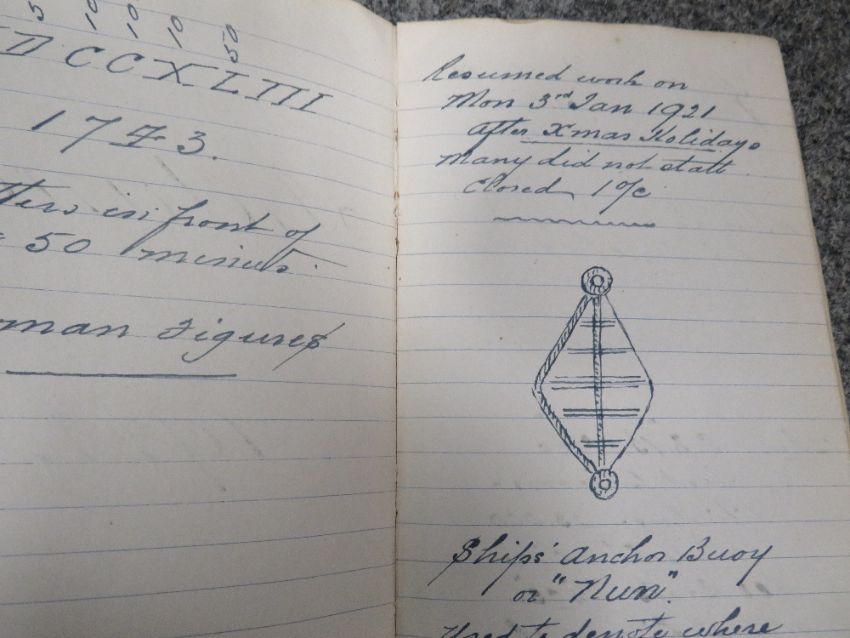 5 10 10 50
D CCXLIII
1743.
in front of
= 50 minus.
man Figures
Resumed work on
Mon 3rd Jan 1921
after Xmas Holidays
Many did not start
Closed 1 o/c
Ships' Anchor Buoy
or "Nun".
Used to denote where